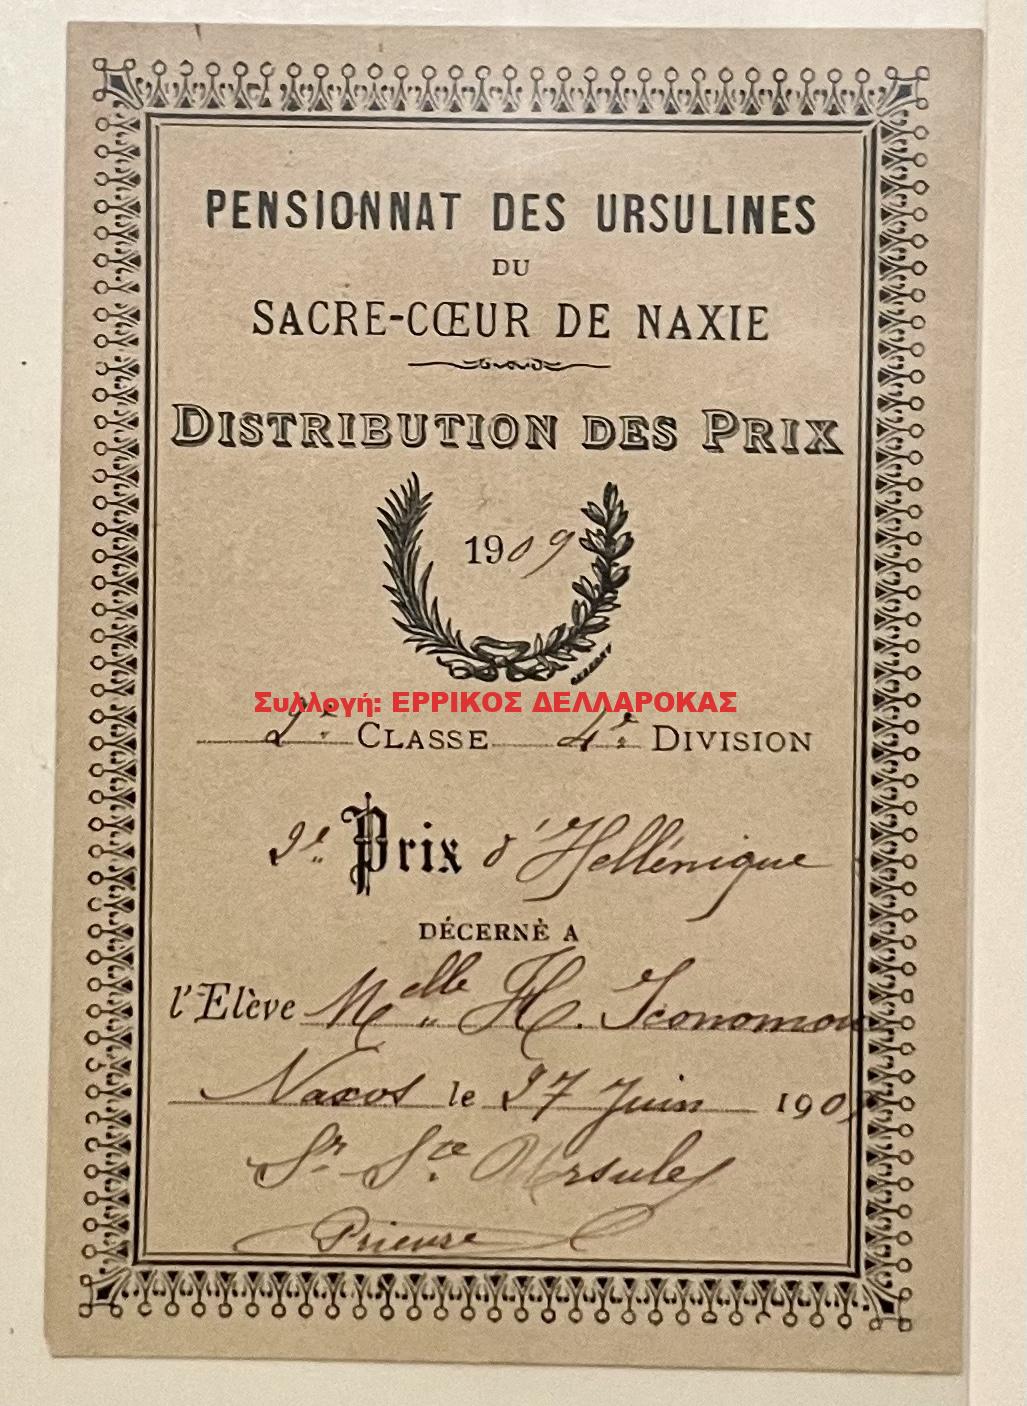 PENSIONNAT DES URSULINES
DU
SACRE-CŒUR DE NAXIE
DISTRIBUTION DES PRIX
1909
Συλλογή: ΕΡΡΙΚΟΣ ΔΕΛΛΑΡΟΚΑΣ
2e CLASSE 4e DIVISION
2e Prix d'Hellénique
DÉCERNÈ A
l'Elève Melle H. Iconomou
Naxos le 27 Juin 190
Sr Ste Ursule
Prieure